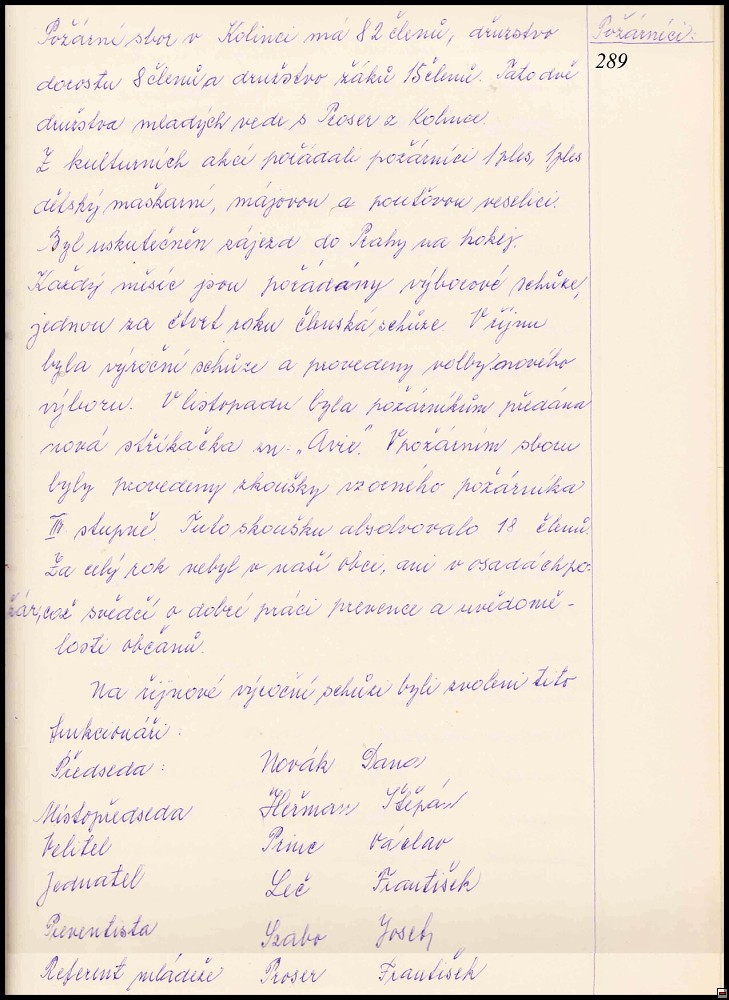 Požární sbor v Kolinci má 82 členů, družstvo
Požárníci:
289
dorostu 8členů a družstvo žáků 15členů. Tato dvě
družstva mladých vede s Proser z Kolince.
Z kulturních akcí pořádali požárníci 1ples, 1ples
dětský maškarní, májovou a pouťovou veselici.
Byl uskutečněn zájezd do Prahy na hokej.
Každý měsíc jsou pořádány výborové schůze,
jednou za čtvrt roku členská schůze V říjnu
byla výroční schůze a provedeny volby nového
výboru. V listopadu byla požárníkům předána
nová stříkačka zn: „Avie". V požárním sboru
byly provedeny zkoušky vzorného požárníka
III stupně. Tuto zkoušku absolvovalo 18 členů.
Za celý rok nebyl v naší obci, ani v osadách po-
žár, což svědčí o dobré práci prevence a uvědomě-
losti občanů.
Na říjnové výroční schůzi byli zvoleni tito
funkcionáři:
Předseda: Novák Dana
Místopředseda Heřman Štěpán
Velitel Princ Václav
Jednatel Leč František
Preventista Szabo Josef
Referent mládeže Proser František